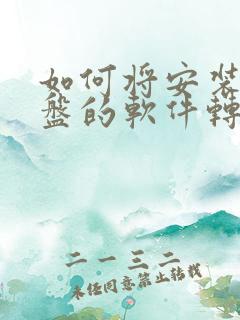 如何将安装
盤的軟件轉
二一三二
未经同意禁止转载